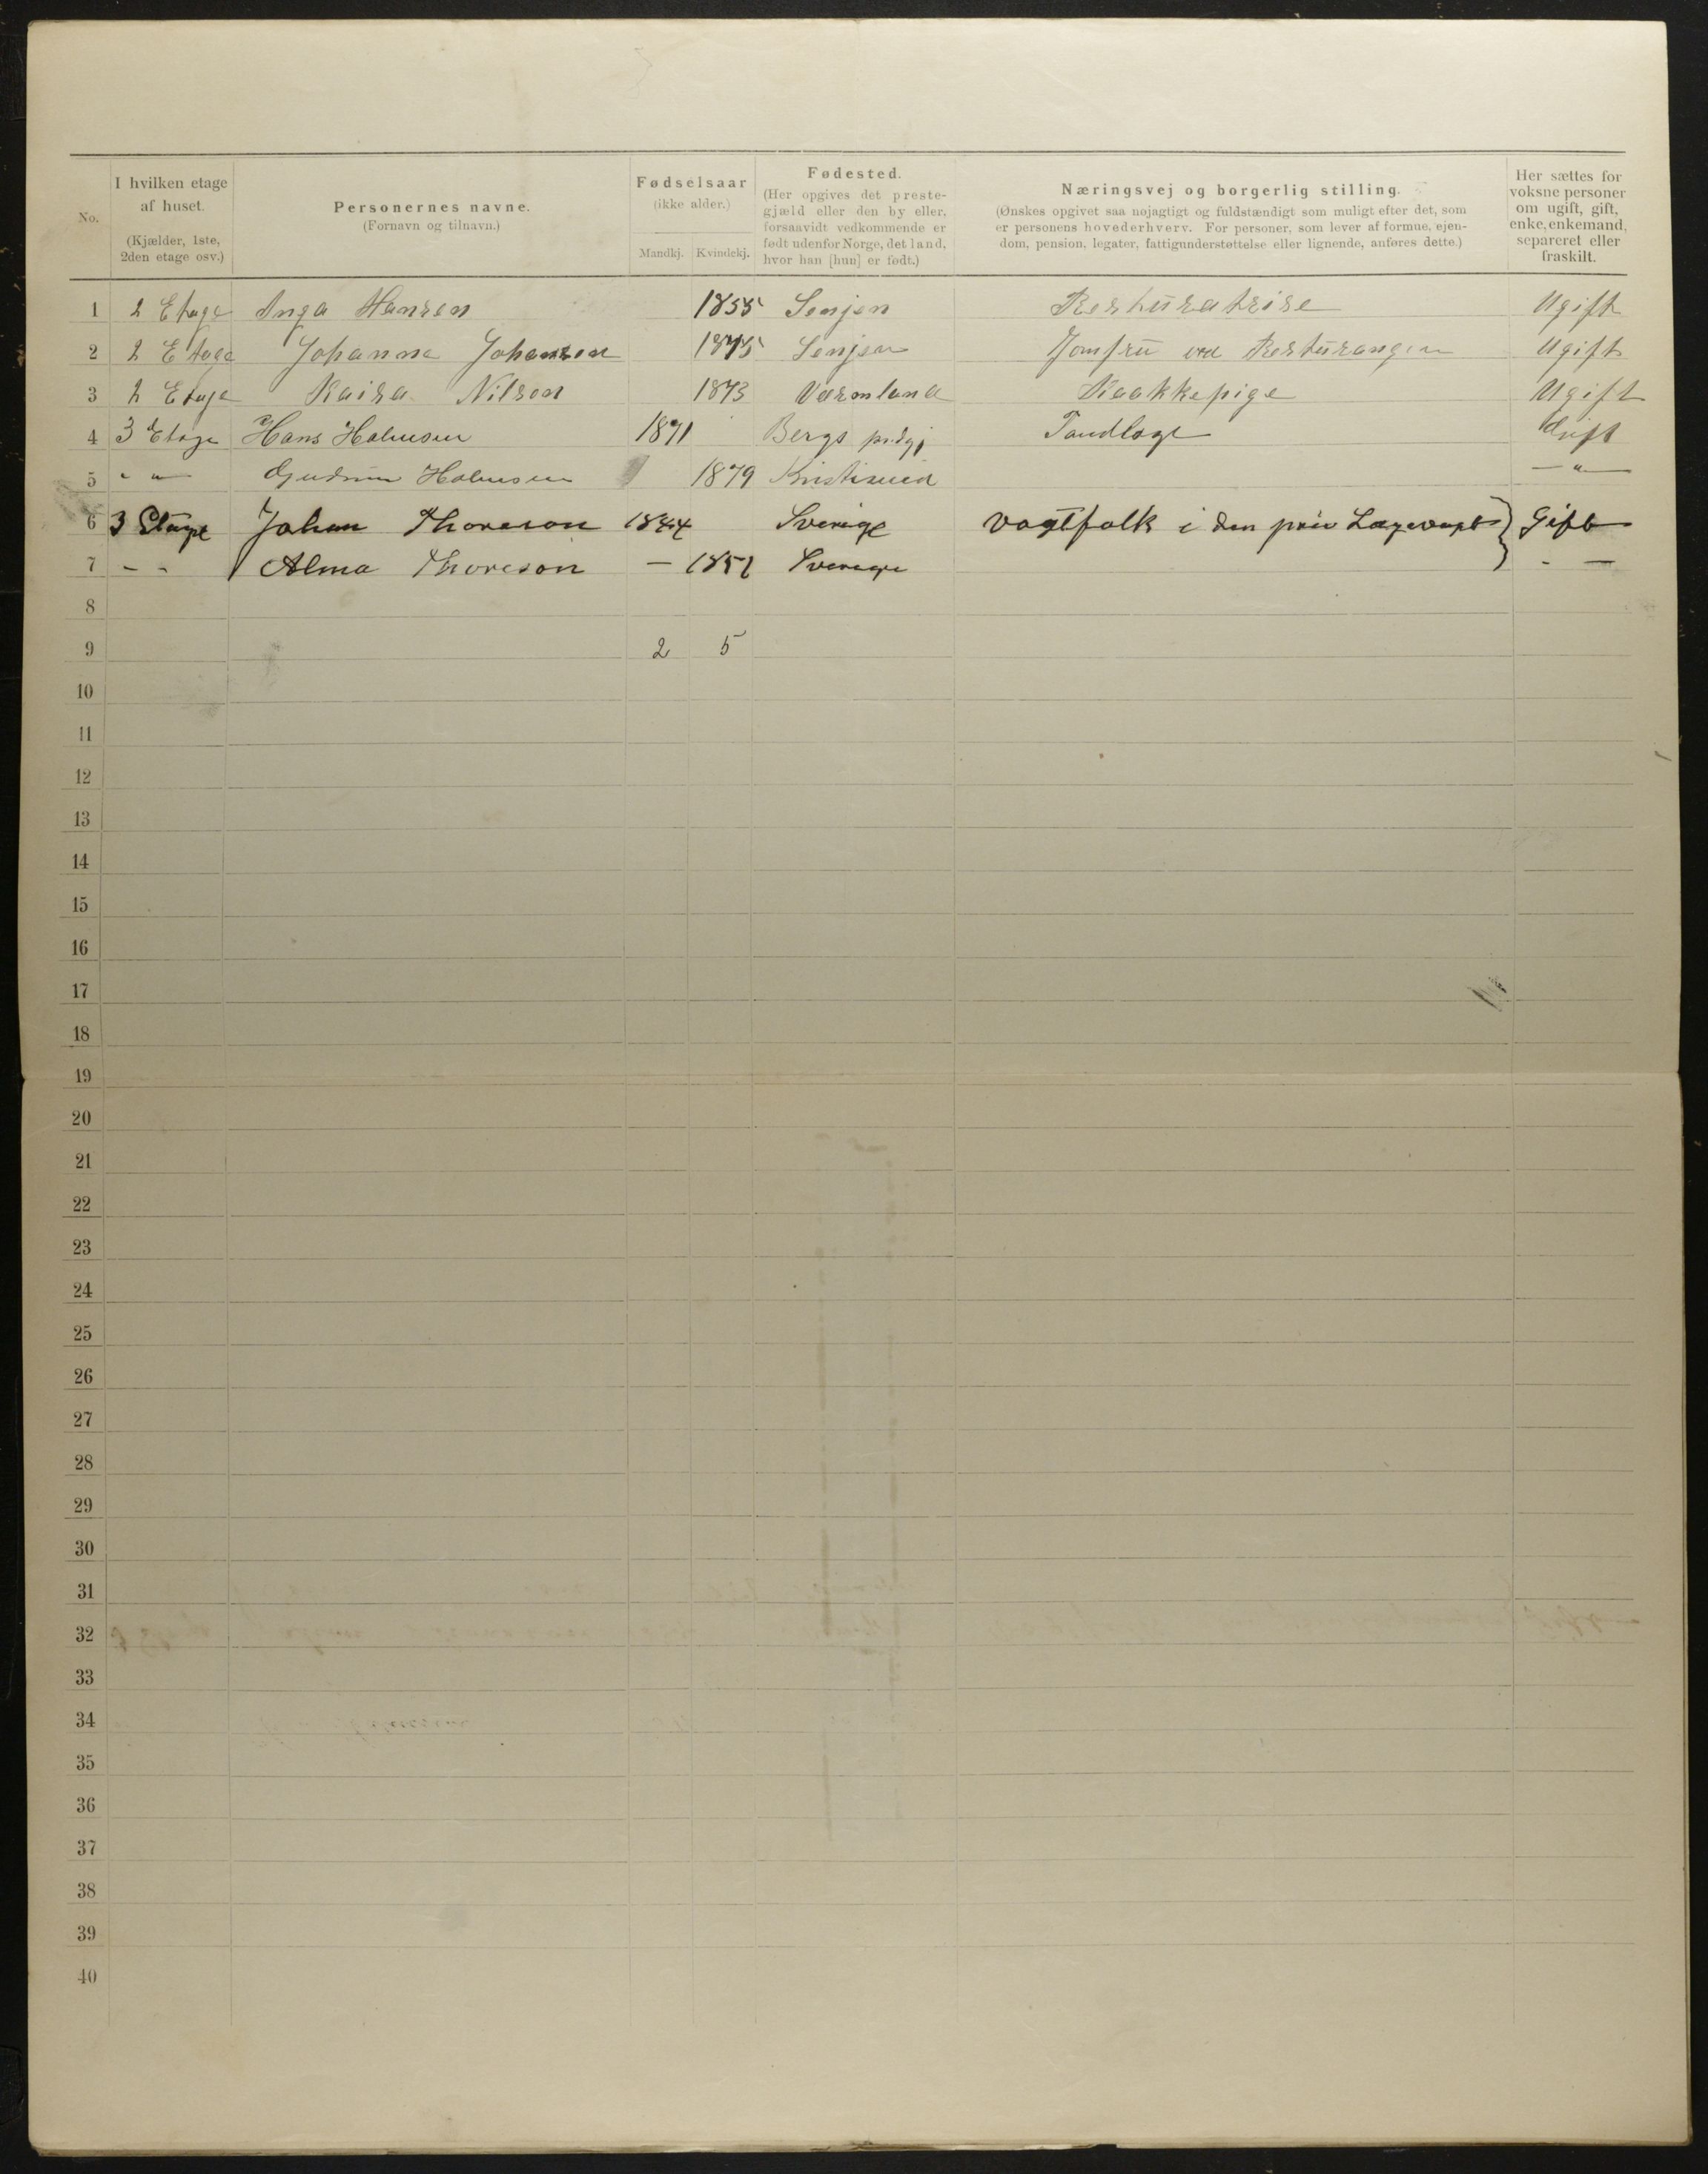 No.
I hvilken etage
af huset.
(Kjælder, 1ste,
2den etage osv.)
Personernes navne.
(Fornavn og tilnavn.)
Fødselsaar
(ikke alder.)
Mandkj. Kvindekj.
Fødested.
(Her opgives det preste-
gjæld eller den by eller,
forsaavidt vedkommende er
født udenfor Norge, det land,
hvor han [hun] er født.)
Næringsvej og borgerlig stilling.
(Ønskes opgivet saa nøjagtigt og fuldstændigt som muligt efter det, som
er personens hovederhverv. For personer, som lever af formue, ejen-
dom, pension, legater, fattigunderstøttelse eller lignende, anføres dette.)
Her sættes for
voksne personer
om ugift, gift,
enke, enkemand,
separeret eller
fraskilt.
1 2 Etage Inga Hansen 1855 Senjen Restüratrise Ugift
2 2 Etage Johanna Johansen 1875 Senjen Jomfrü ved Restürangen Ugift
3 2 Etage Kaisa Nilson 1873 Värmland Kaakkepige Ugift
4 3 Etage Hans Holmsen 1871 Bergs prdgj Tandlæge Gift
5 " " Gudrun Holmsen 1879 — " —
6 3 Etage Johan Thoreson 1844 Sverige Vagtfolk i den priv Lægevagt } Gift
7 - - Alma Thoreson — 1851 Sverige - —
8
9 2 5
10
11
12
13
14
15
16
17
18
19
20
21
22
23
24
25
26
27
28
29
30
31
32
33
34
35
36
37
38
39
40